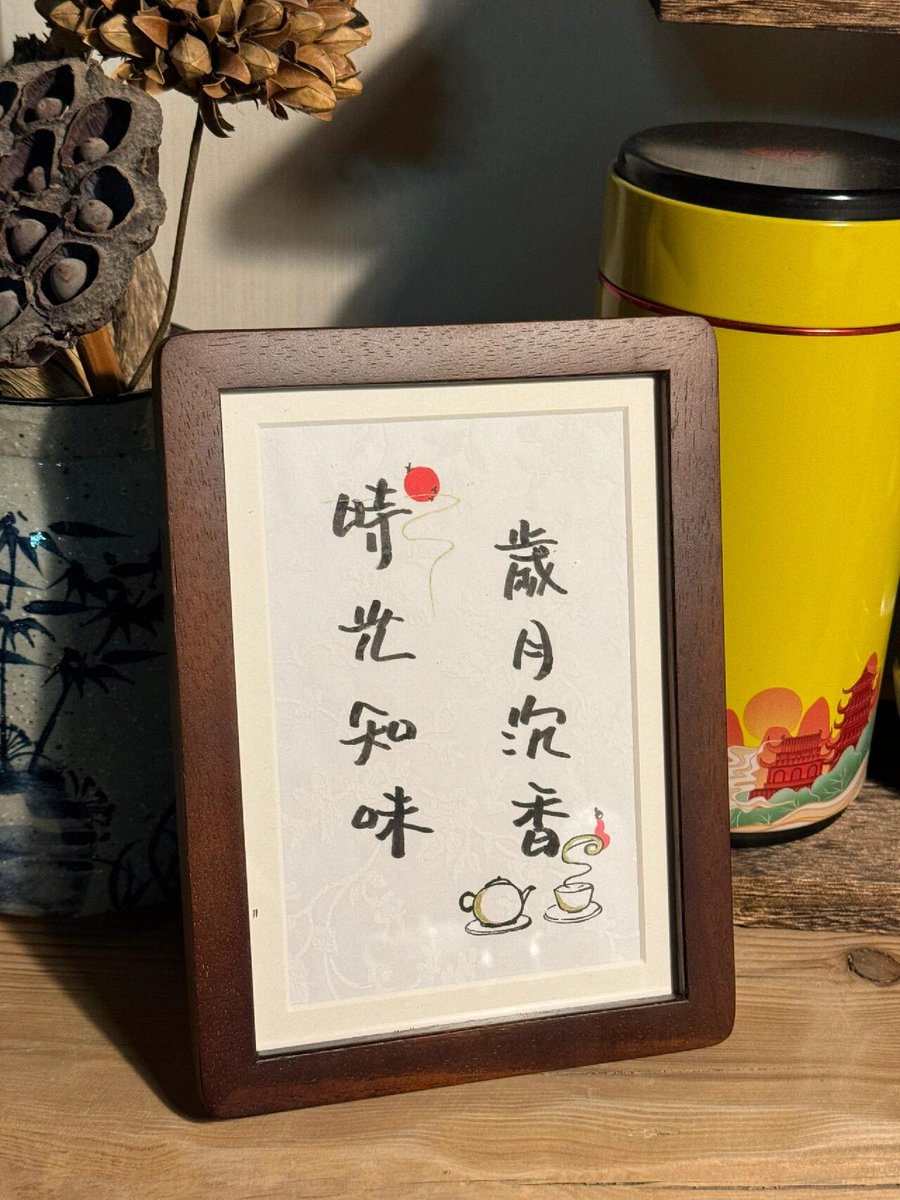 歲月沉香
時光知味